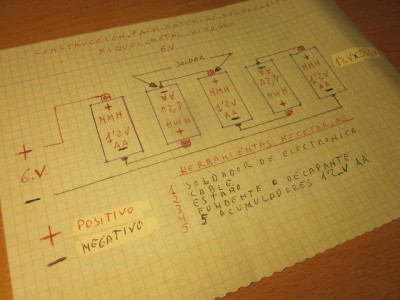 CONSTRUCCION PACK BATERIAS RECARGABLES
NIQUEL METAL HIDRURO
6.V.
SOLDAR
1'2V X 5=6V
+
NMH
1'2V
AA
-
-
AA
1'2V
NMH
+
+
NMH
1'2V
AA
-
-
AA
1'2V
NMH
+
+
NMH
1'2V
AA
-
+
6.V.
-
HERRAMIENTAS NECESARIAS
1 SOLDADOR DE ELECTRONICA.
2 CABLE
3 ESTAÑO
4 FUNDENTE O DECAPANTE
5 5 ACUMULADORES 1'2_V AA
+ POSITIVO
- NEGATIVO